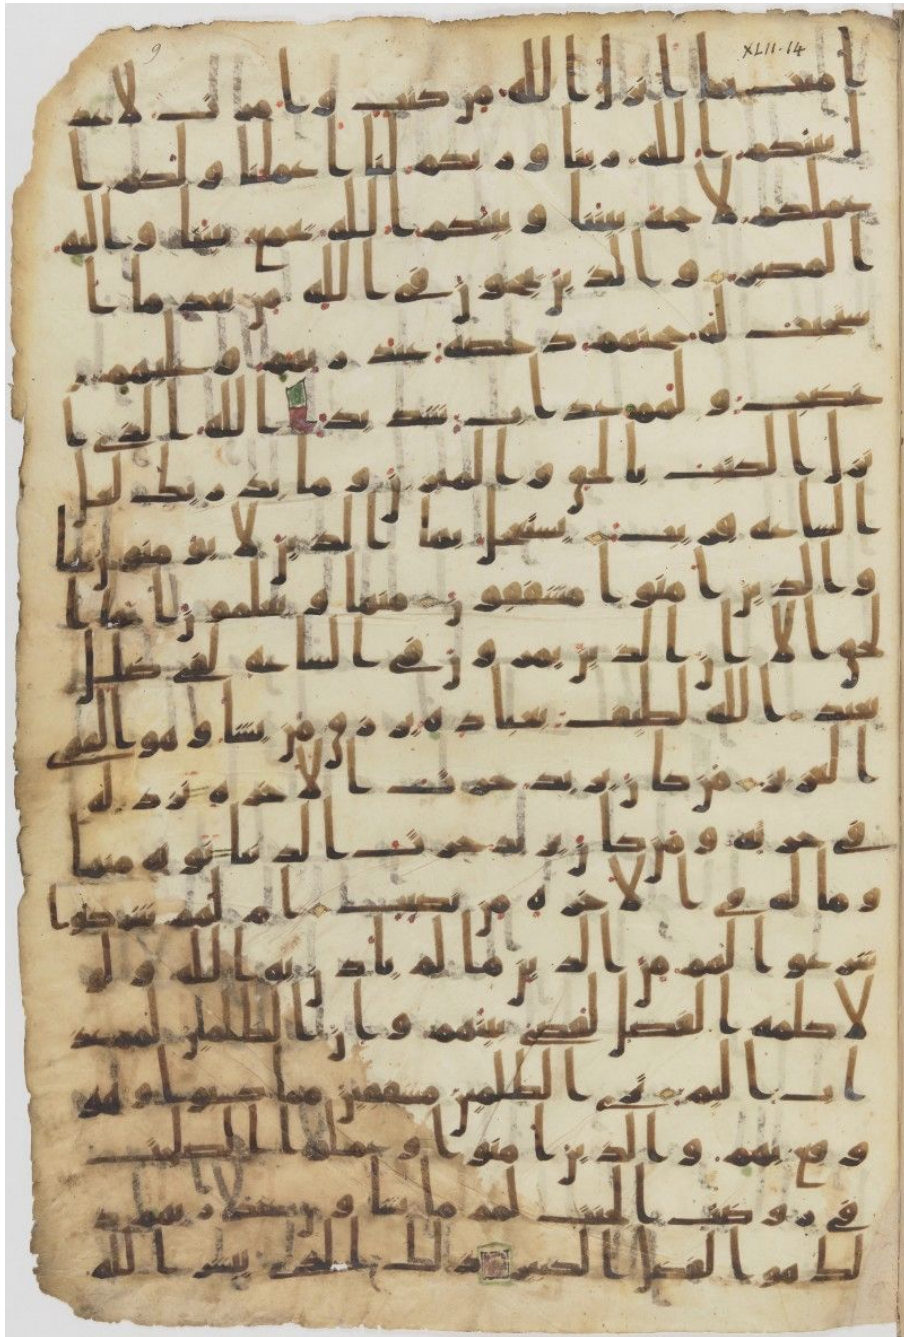 XLII.14
9
امنت بما انزل الله من كتب وامرت لاعد
ل بينكم الله ربنا وربكم لنا اعملنا ولكم ا
عملكم لا حجة بيننا وبينكم الله يجمع بيننا واليه
المصير والذين يحجون في الله من بعد ما ا
ستجيب له حجتهم دحضة عند ربهم وعليهم
غضب ولهم عذاب شديد الله الذي ا
نزل الكتب بالحق والميزن وما يدريك لعل
الساعة قريب يستعجل بها الذين لا يومنون بها
والذين امنوا مشفقون منها ويعلمون انها ا
لحق الا ان الذين يمرون في الساعة لفي ضلل
بعيد الله لطيف بعباده يرزق من يشا وهو القوي
العزيز من كان يريد حرث الاخرة نزد له
في حرثه ومن كان يريد حرث الدنيا نوته منها
وما له في الاخرة من نصيب ام لهم شركوا
شرعوا لهم من الدين ما لم ياذن به الله ولو
لا كلمة الفصل لقضي بينهم وان الظلمين لهم عذ
اب اليم تري الظلمين مشفقين مما كسبوا وهو
وقع بهم والذين امنوا وعملوا الصلحت
في روضت الجنت لهم ما يشاون عند ربهم ذ
لك هو الفضل الكبير ذلك الذي يبشر الله